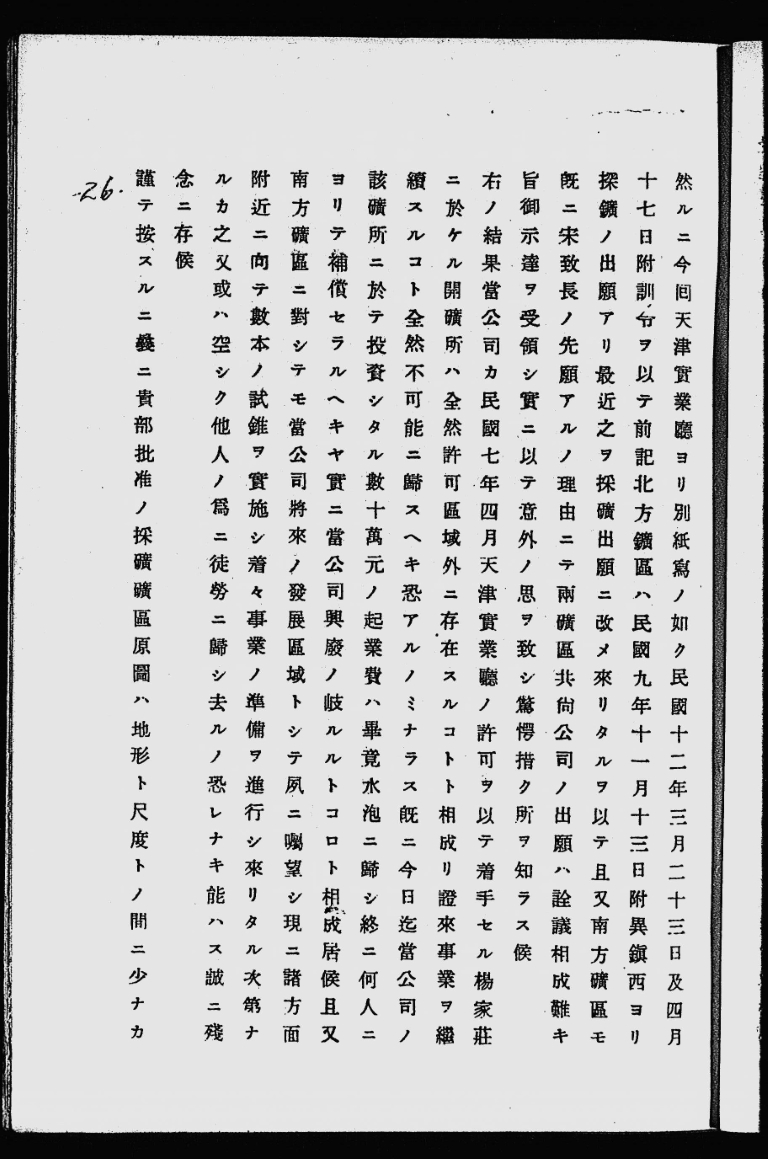 然ルニ今囘天津實業廳ヨリ別紙寫ノ如ク民國十二年三月二十三日及四月
十七日附訓令ヲ以テ前記北方鑛區ハ民國九年十一月十三日附異鎭西ヨリ
探鑛ノ出願アリ最近之ヲ採礦出願ニ改メ來リタルヲ以テ且又南方礦區モ
旣ニ宋致長ノ先願アルノ理由ニテ兩礦區共尙公司ノ出願ハ詮議相成難キ
旨御示達ヲ受領シ實ニ以テ意外ノ思ヲ致シ驚愕措ク所ヲ知ラス候
右ノ結果當公司カ民國七年四月天津實業廳ノ許可ヲ以テ着手セル楊家莊
ニ於ケル開礦所ハ全然許可區域外ニ存在スルコトト相成リ證來事業ヲ繼
續スルコト全然不可能ニ歸スヘキ恐アルノミナラス旣ニ今日迄當公司ノ
該礦所ニ於テ投資シタル數十萬元ノ起業費ハ畢竟水泡ニ歸シ終ニ何人ニ
ヨリテ補償セラルヘキヤ實ニ當公司興廢ノ岐ルルトコロト相成居候且又
南方礦區ニ對シテモ當公司將來ノ發展區域トシテ夙ニ囑望シ現ニ諸方面
附近ニ向テ數本ノ試錐ヲ實施シ着々事業ノ準備ヲ進行シ來リタル次第ナ
ルカ之又或ハ空シク他人ノ爲ニ徒勞ニ歸シ去ルノ恐レナキ能ハス誠ニ殘
念ニ存候
謹テ按スルニ曩ニ貴部批准ノ採礦礦區原圖ハ地形ト尺度トノ間ニ少ナカ
26.